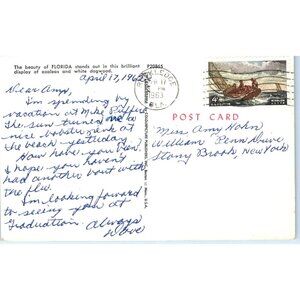 The beauty of FLORIDA stands out in this brilliant
display of azaleas and white dogwood.
P20865
April 17, 1963
Dear Amy,
I'm spending my
vacation at
The sun turned me a
nice lobster pink at
the beach yesterday.
How have you been?
I hope you haven't
had another bout with
the flu.
I'm looking forward
to seeing you at
Graduation.
Always
Dave
1963
FLA.
4¢
POST CARD
Miss Amy Hahn
William Penn Drive
Stony Brook, New York